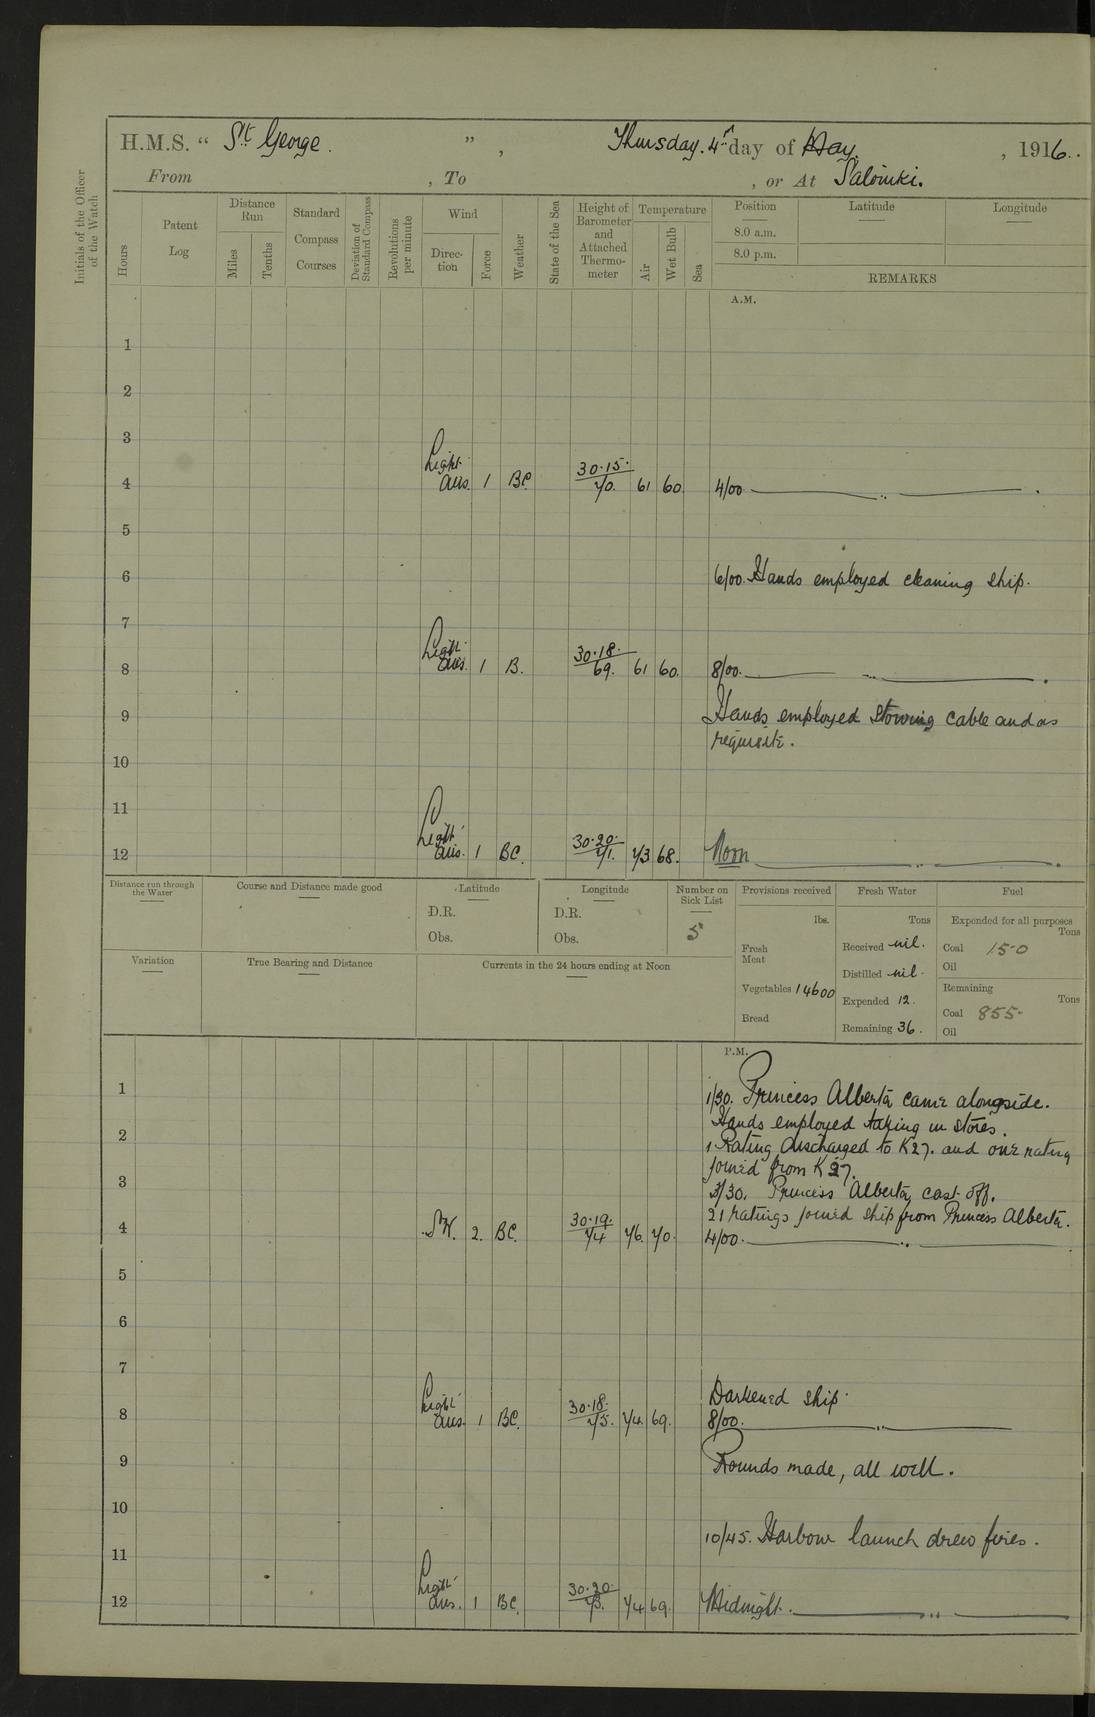 H.M.S. " St George. ", Thursday. 4th day of May, 1916..
From , To , or At Salonika.
Initials of the Officer of the Watch
Hours
Patent Log
Distance Run
Miles
Tenths
Standard Compass Courses
Deviation of Standard Compass
Revolutions per minute
Wind
Direction
Force
Weather
State of the Sea
Height of Barometer and Attached Thermometer
Temperature
Air
Wet Bulb
Sea
Position Latitude Longitude
8.0 a.m.
8.0 p.m.
REMARKS
A.M.
1
2
3
4 Light airs. 1 BC. 30.15. 70. 61 60. 4/00 ——— „ ———.
5
6 6/00. Hands employed cleaning ship.
7
8 Light airs. 1 B. 30.18. 69. 61 60. 8/00. ——— „ ———.
9 Hands employed stowing cable and as
requisite.
10
11
12 Light airs. 1 BC. 30.20. 71. 73 68. Noon ——— „ ———.
Distance run through the Water
Course and Distance made good
Latitude
D.R.
Obs.
Longitude
D.R.
Obs.
Number on Sick List
5
Provisions received
lbs.
Fresh Meat
Vegetables 14600
Bread
Fresh Water
Tons
Received nil.
Distilled nil.
Expended 12.
Remaining 36.
Fuel
Expended for all purposes
Tons
Coal 15.0
Oil
Remaining
Tons
Coal 855.
Oil
Variation
True Bearing and Distance
Currents in the 24 hours ending at Noon
P.M.
1 1/30. Princess Alberta came alongside.
Hands employed taking in stores.
2 1 Rating discharged to K27. and one rating
joined from K27.
3 3/30. Princess Alberta cast off.
21 ratings joined ship from Princess Alberta.
4 SW. 2. BC. 30.19. 74 76. 70. 4/00. ——— „ ———
5
6
7
Darkened ship.
8 Light airs. 1 BC. 30.18. 75. 74. 69. 8/00. ——— „ ———
9 Rounds made, all well.
10
10/45. Harbour launch drew fires.
11
12 Light airs. 1 BC. 30.20. 73. 74 69. Midnight. ——— „ ———